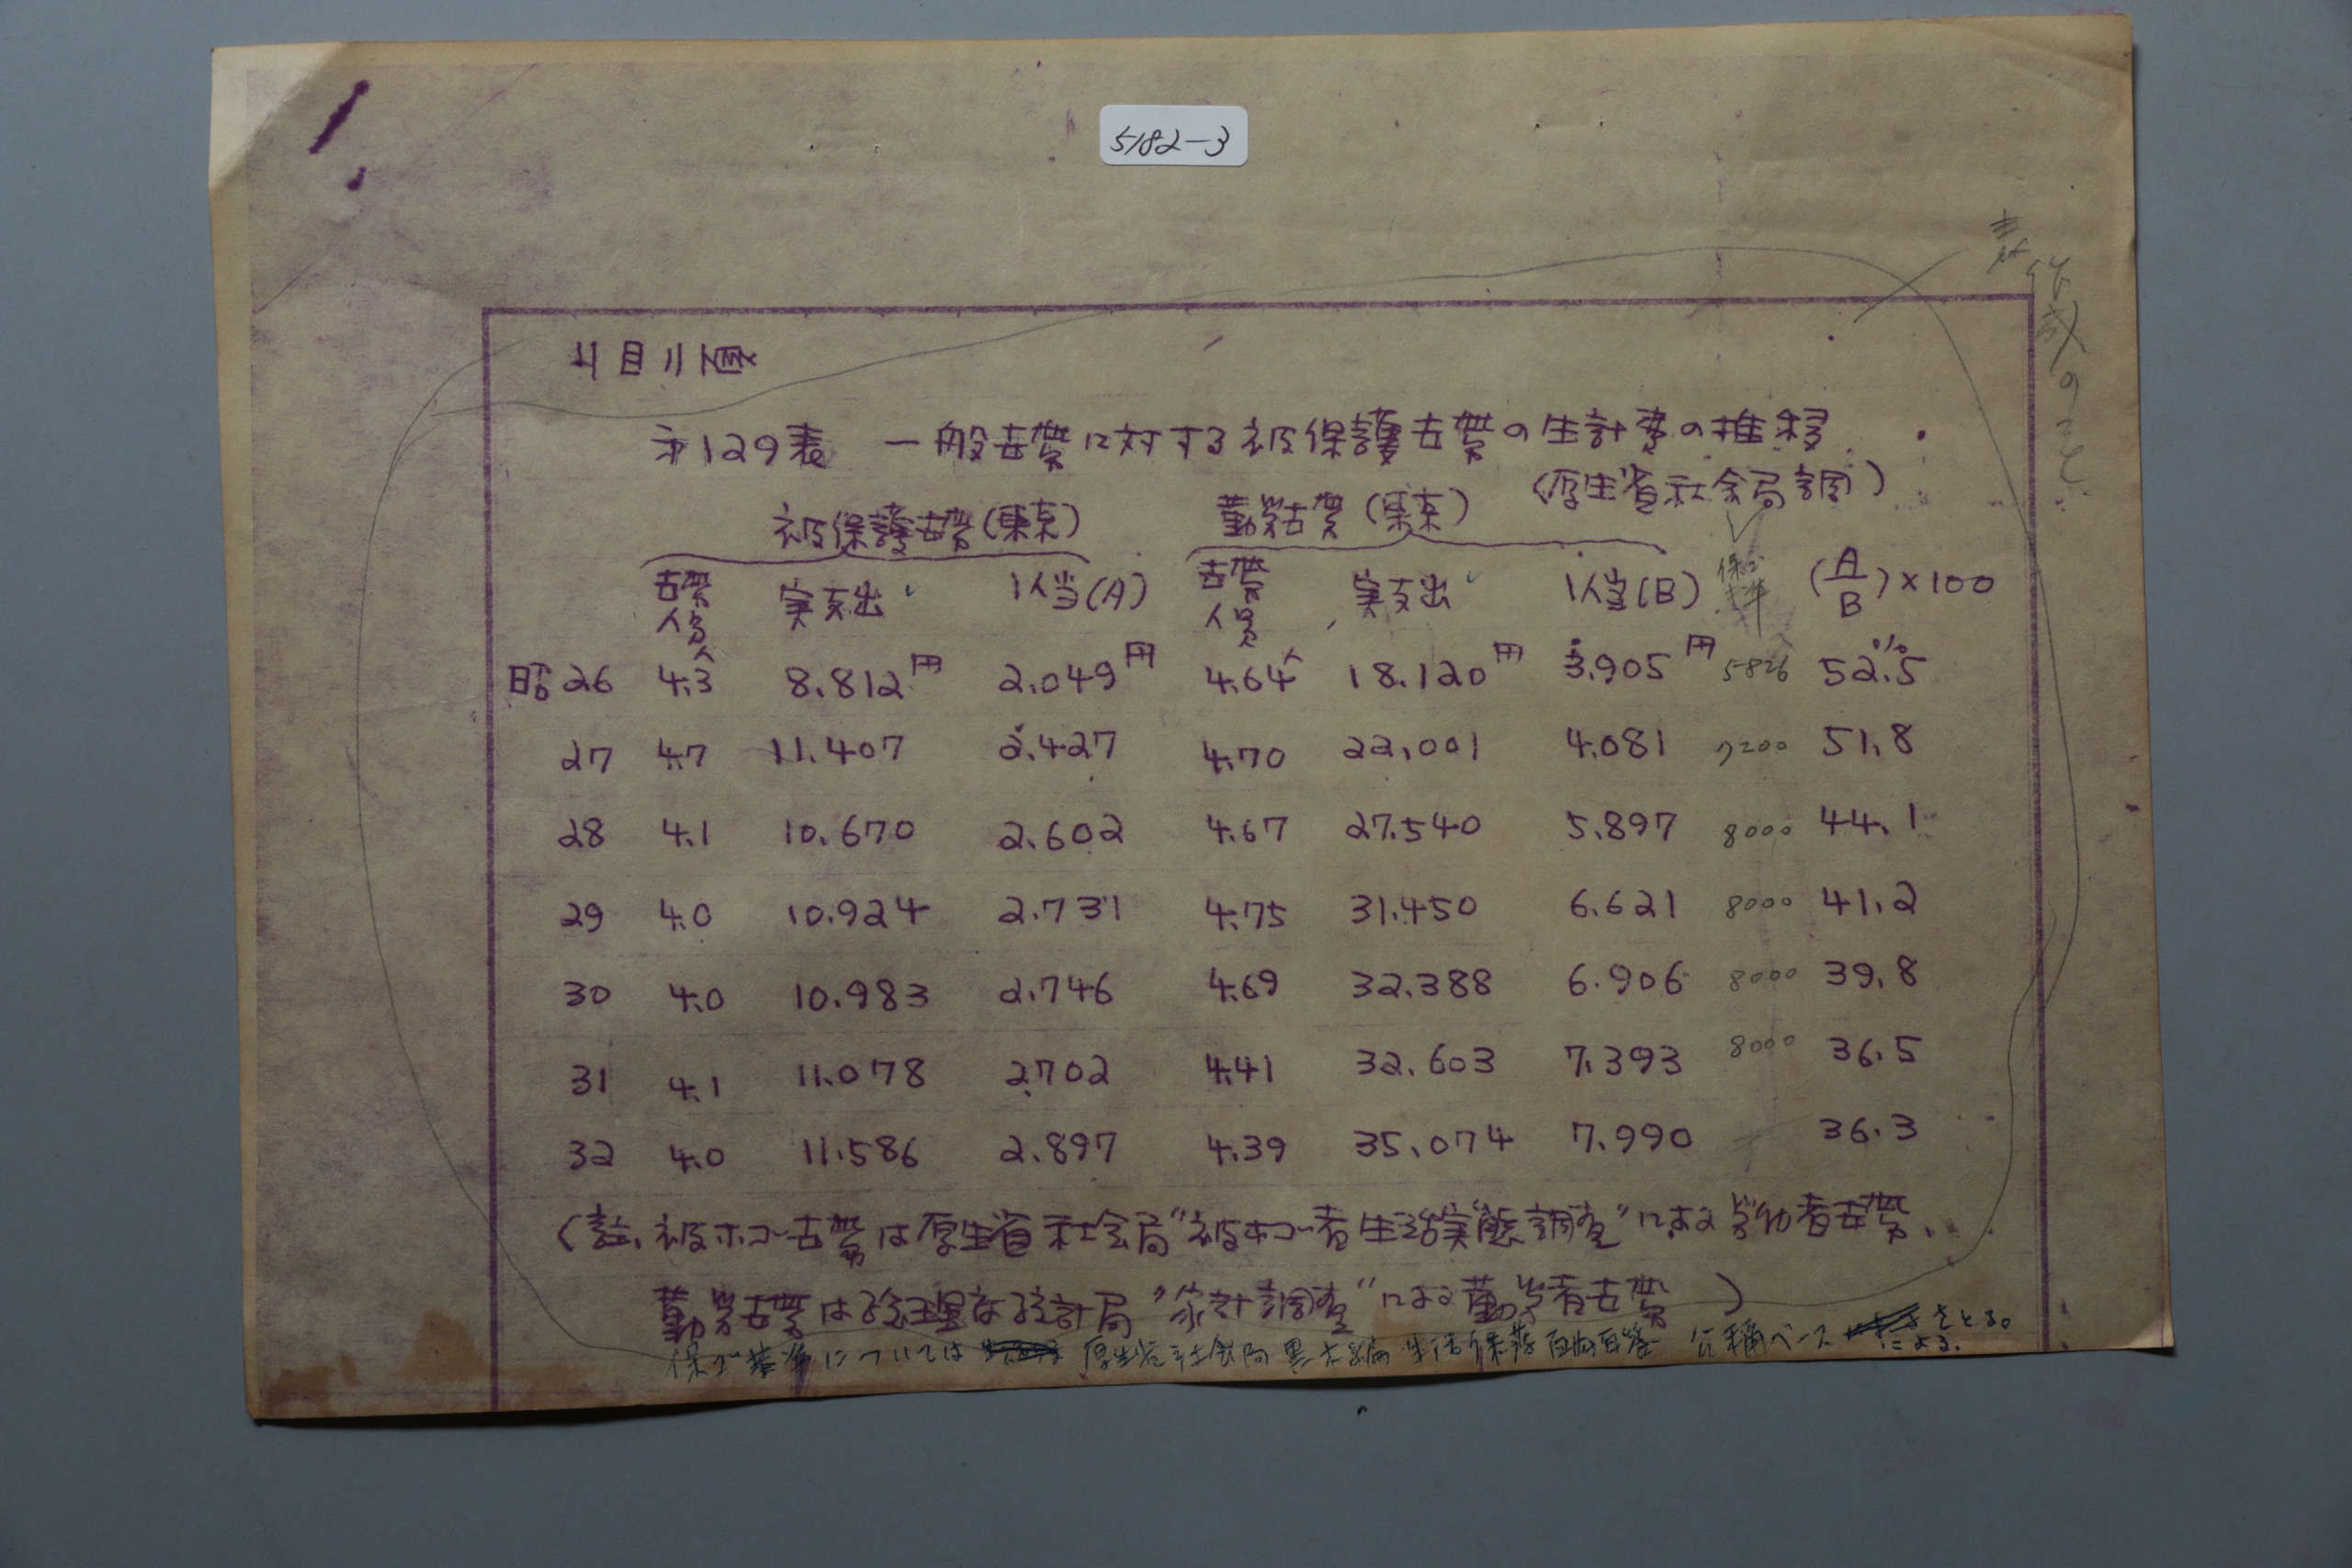 5182-3
表作成のこと
才129表 一般世帯に対する被保護世帯の生計費の推移
(厚生省社会局調)
被保護世帯(東京) 勤労世帯(東京)
世帯人員 実支出 1人当(A) 世帯人員 実支出 1人当(B) 保ゴ基準 (A/B)×100
昭26 4.3人 8.812円 2.049円 4.64人 18.120円 3.905円 5826 52.5%
27 4.7 11.407 2.427 4.70 22,001 4.081 7200 51.8
28 4.1 10.670 2.602 4.67 27.540 5.897 8000 44.1
29 4.0 10.924 2.731 4.75 31.450 6.621 8000 41.2
30 4.0 10.983 2.746 4.69 32.388 6.906 8000 39.8
31 4.1 11.078 2.702 4.41 32.603 7.393 8000 36.5
32 4.0 11.586 2.897 4.39 35.074 7.990 36.3
(註、被ホゴ世帯は厚生省社会局"被ホゴ者生活実態調査"による労働者世帯、
勤労世帯は総理府統計局"家計調査"による勤労者世帯)
保ゴ基準については 厚生省社会局 黒木編 生活保護百問百答 公称ベース による。